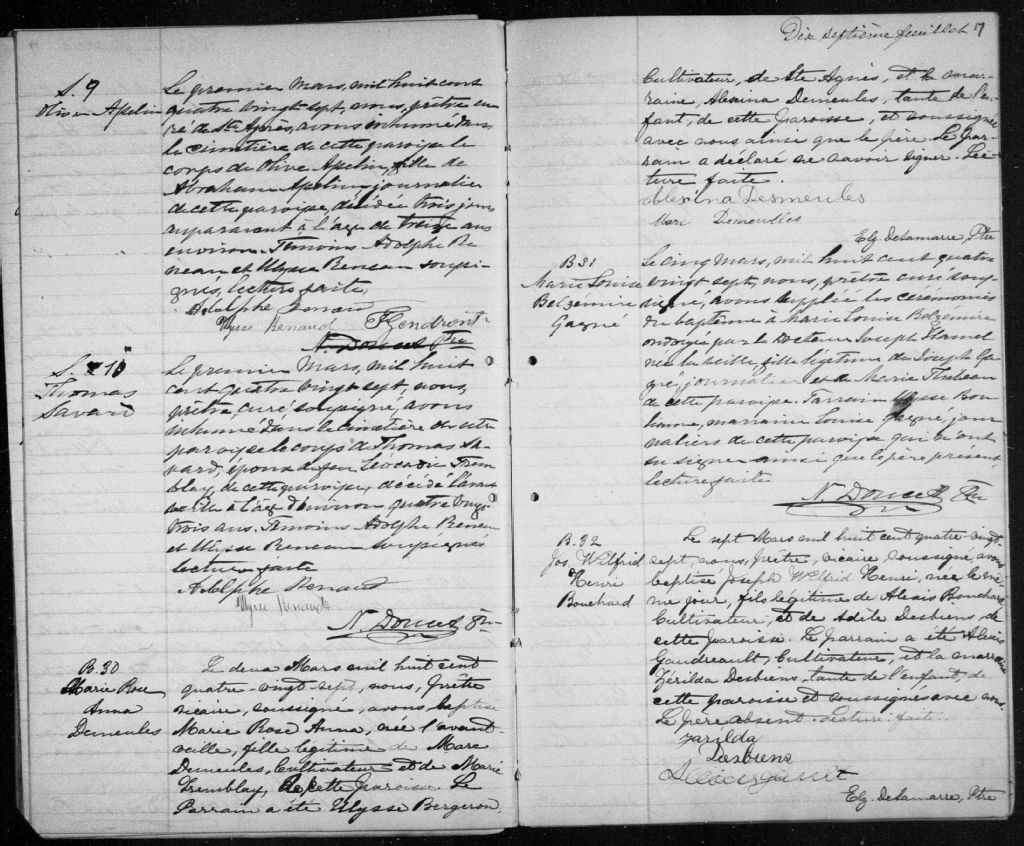 S. 9
Olive Apelin
Le premier Mars, mil huit cent
quatre vingt sept, nous, prêtre cu-
ré de Ste Agnès, avons inhumé dans
le cimetière de cette paroisse le
corps de Olive Apelin, fille de
Abraham Apelin, journalier
de cette paroisse, décédée trois jours
auparavant à l'âge de treize ans
environ. Temoins Adolphe Re-
neau et Ulysse Reneau soussi-
gnés, lecture faite.
Adolphe Renaud
Ulysse Renaud
N. Doucet Ptre
S. 10
Thomas
Savard
Le premier Mars, mil huit
cent quatre vingt sept, nous,
prêtre, curé, soussigné, avons
inhumé dans le cimetière de cette
paroisse le corps de Thomas Sa-
vard, époux de feu Trem-
blay, de cette paroisse, décédé l'avant
veille à l'âge d'environ quatre vingt
trois ans. Temoins Adolphe Reneau
et Ulysse Reneau soussignés
lecture faite
Adolphe Renaud
Ulysse Renaud
N. Doucet Ptre
B. 30
Marie Rose
Anna
Demeules
Le deux Mars mil huit cent
quatre-vingt-sept, nous, Prêtre
vicaire, soussigné, avons baptisé
Marie Rose Anna, née l'avant-
veille, fille légitime de Marc
Demeules, Cultivateur et de Marie
Tremblay, de cette Paroisse. Le
Parrain a été Ulysse Bergeron,
Dix septième feuillet 17
Cultivateur, de Ste Agnès, et la mar-
raine, Alexina Demeules, tante de l'en-
fant, de cette Paroisse, et soussignée
avec nous ainsi que le père. Le Par-
rain a déclaré ne savoir signer. Lec-
ture faite.
Alexina Desmeules
Marc Demeulles
Elz. DeLamarre, Ptre
B. 31
Marie Louise
Belzemire
Gagné
Le cinq Mars, mil huit cent quatre
vingt sept, nous, prêtre curé sous-
signé, avons suppléé les cérémonies
du baptême à Marie Louise Belzemire
ondoyée par le Docteur Joseph Hamel
née la veille, fille légitime de Joseph Ga-
gné, journalier et de Marie
de cette paroisse. Parrain Ulysse Bon-
homme, marraine Louise Gagné, jour-
naliers de cette paroisse qui n'ont
su signer ainsi que le père présent,
lecture faite
N. Doucet Ptre
B. 32
Jos. Wilfrid
Henri
Bouchard
Le sept Mars mil huit cent quatre-vingt
sept, nous, Prêtre, vicaire soussigné avons
baptisé Joseph Wilfrid Henri, née le mê-
me jour, fils légitime de Alexis Bouchard
Cultivateur, et de Adile Desbiens, de
cette Paroisse. Le parrain a été Alexis
Gaudreault, Cultivateur, et la marraine
Zérilda Desbiens, tante de l'enfant, de
cette paroisse et soussignés avec nous.
Le Père absent. Lecture faite.
Zarilda
Desbiens
Elz. DeLamarre, Ptre